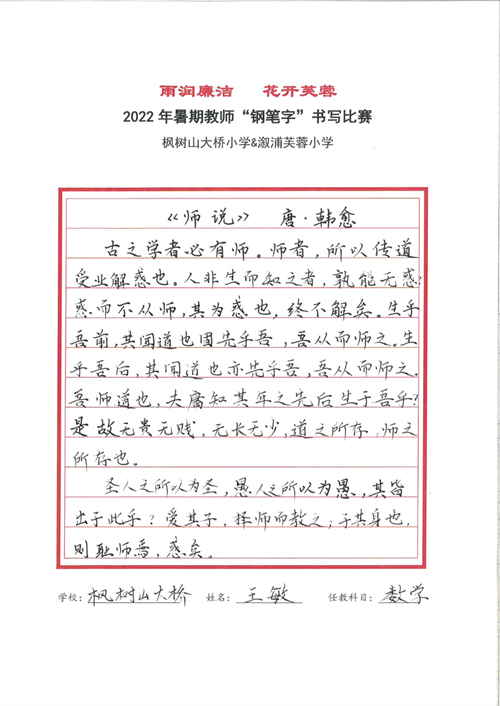 雨润廉洁 花开芙蓉
2022年暑期教师“钢笔字”书写比赛
枫树山大桥小学&溆浦芙蓉小学
《师说》 唐·韩愈
古之学者必有师。师者，所以传道
受业解惑也。人非生而知之者，孰能无惑？
惑而不从师，其为惑也，终不解矣。生乎
吾前，其闻道也固先乎吾，吾从而师之。生
乎吾后，其闻道也亦先乎吾，吾从而师之。
吾师道也，夫庸知其年之先后生于吾乎？
是故无贵无贱，无长无少，道之所存，师之
所存也。
圣人之所以为圣，愚人之所以为愚，其皆
出于此乎？爱其子，择师而教之；于其身也，
则耻师焉，惑矣。
学校：枫树山大桥 姓名：王敏 任教科目：数学